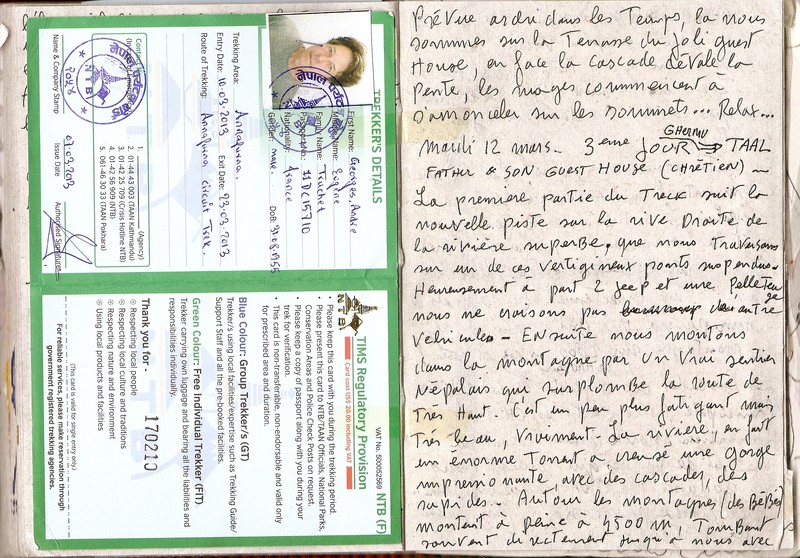 TREKKER'S DETAILS
First Name: Georges, André
Middle Name: Eugène
Family Name: Truchet
Passport No.: 11DC15710
Nationality: france
Gender: male. DoB: 31.08.1955
Trekking Area: Annapurna.
Entry Date: 10-03-2013 Exit Date: 23-03-2013
Route of Trekking: Annapurna Circuit Trek.
(Agency)
1.
2. 01-44 43 003 (TAAN Kathmandu)
3. 01-42 25 709 (Crisis Hotline NTB)
4. 01-42 56 909 (NTB)
5. 061-46 30 33 (TAAN Pokhara)
NTB
Name & Company Stamp
07-03-2013
Issue Date
Authorised Signature
VAT No. 500052569 NTB (F)
TIMS Regulatory Provision
Card cost US$ 20.00 including VAT
NTB
• Please keep this card with you during the trekking period.
• Please present this card to NTB/TAAN Officials, National Parks,
Conservation Areas and Police Check Posts on request.
• Please keep a copy of passport along with you during your
trek for verification.
• This card is non-transferable, non-endorsable and valid only
for prescribed area and duration.
Blue Colour: Group Trekker/s (GT)
Trekker/s using local facilities/expertise such as Trekking Guide/
Support Staff and all the pre-booked facilities.
Green Colour: Free Individual Trekker (FIT)
Trekker carrying own luggage and bearing all the liabilities and
responsibilities individually.
Thank you for -
Respecting local people
Respecting local culture and traditions
Respecting nature and environment
Using local products and facilities
170210
(This card is valid for single entry only.)
For reliable services, please make reservation through
government registered trekking agencies.
Prévue ardri dans les Temps, la nous
sommes sur la Terrasse du joli guest
House, en face la cascade dévale la
pente, les nuages commencent à
s'amonceler sur les sommets... Relax...
Mardi 12 mars. 3eme JOUR GHERMU → TAAL
FATHER & SON GUEST HOUSE (CHRÉTIEN) –
La premiere partie du Treck suit la
nouvelle piste sur la rive Droite de
la rivière superbe, que nous Traversons
sur un de ces vertigineux ponts suspendus –
Heureusement à part 2 jeep et une Pelleteuse
nous ne croisons pas d'autre
vehicules – Ensuite nous montons
dans la montagne par un vrai sentier
Népalais qui surplombe la route de
Très Haut. C'est un peu plus fatigant mais
Très beau vraiment. La rivière, en fait
un énorme Torrent a creusé une gorge
impressionnante, avec des cascades, des
rapides. Autour les montagnes (des BéBés)
montent à peine à 4500 m, Tombant
souvent directement jusqu'à nous avec